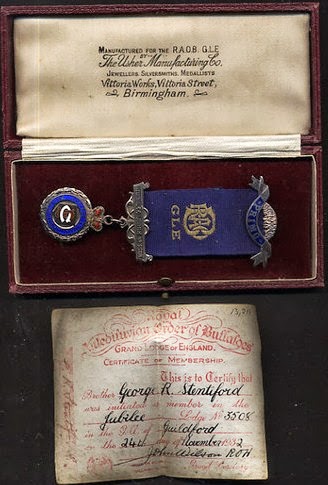 MANUFACTURED FOR THE R.A.O.B. G.L.E
BY
The Usher Manufacturing Co.
JEWELLERS, SILVERSMITHS, MEDALLISTS
Vittoria Works, Vittoria Street,
Birmingham.
GLE
Royal
Antediluvian Order of Buffaloes
GRAND LODGE OF ENGLAND.
CERTIFICATE OF MEMBERSHIP.
This is to Certify that
Brother George K. Stentiford
was initiated a member in the
Jubilee Lodge No 3508
in the Guildford
on the 24th day of November 1932
John Wilson ROH
Grand Secretary